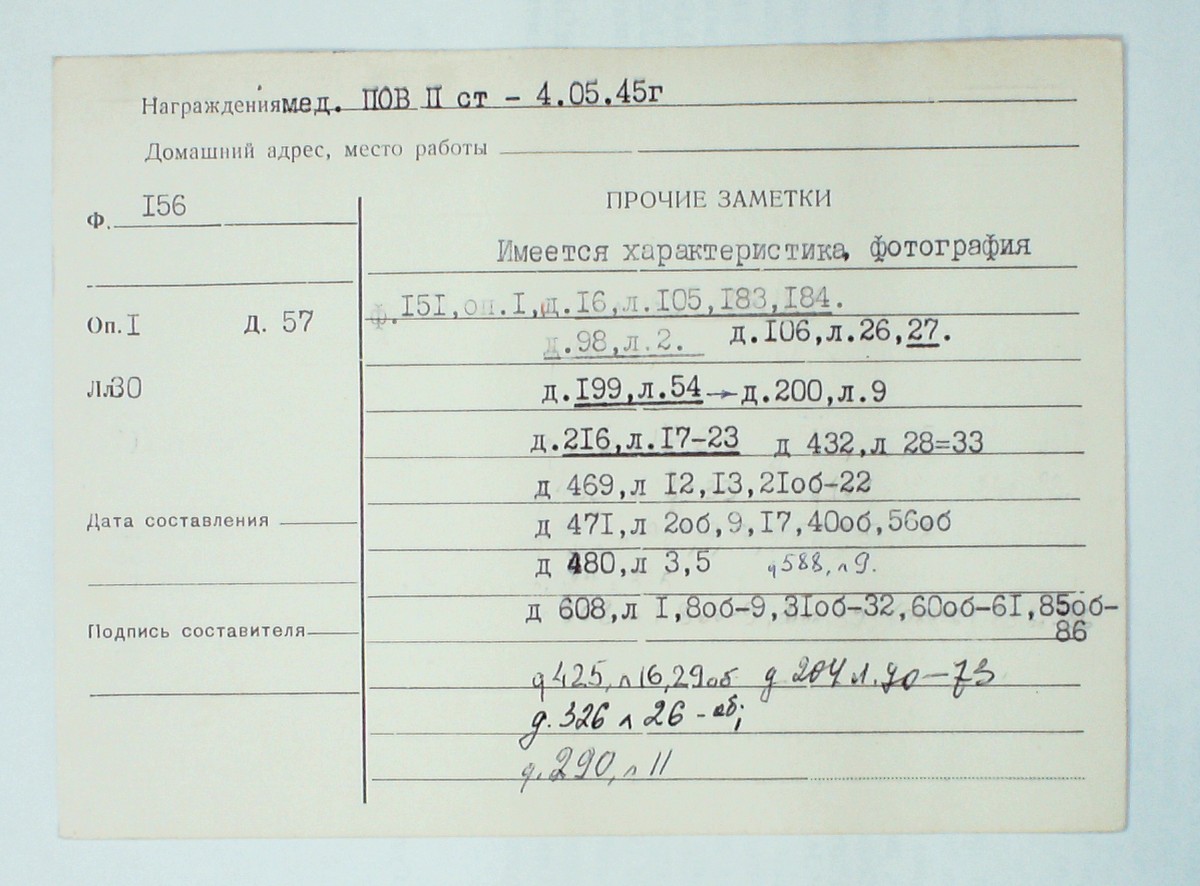 Награждения мед. ПОВ П ст - 4.05.45г
Домашний адрес, место работы
Ф. I56
Оп. I Д. 57
Лл30
Дата составления
Подпись составителя
ПРОЧИЕ ЗАМЕТКИ
Имеется характеристика, фотография
ф.I5I,оп.I,д.I6,л.I05,I83,I84.
д.98,л.2. д.I06,л.26,27.
д.I99,л.54→д.200,л.9
д.2I6,л.I7-23 д 432,л 28=33
д 469,л I2,I3,2Iоб-22
д 47I,л 2об,9,I7,40об,56об
д 480,л 3,5 д588, л 9.
д 608,л I,8об-9,3Iоб-32,60об-6I,85об-
86
д 425, л 16, 29об д 204 л. 70-73
д. 326 л 26 - об;
д. 290, л 11